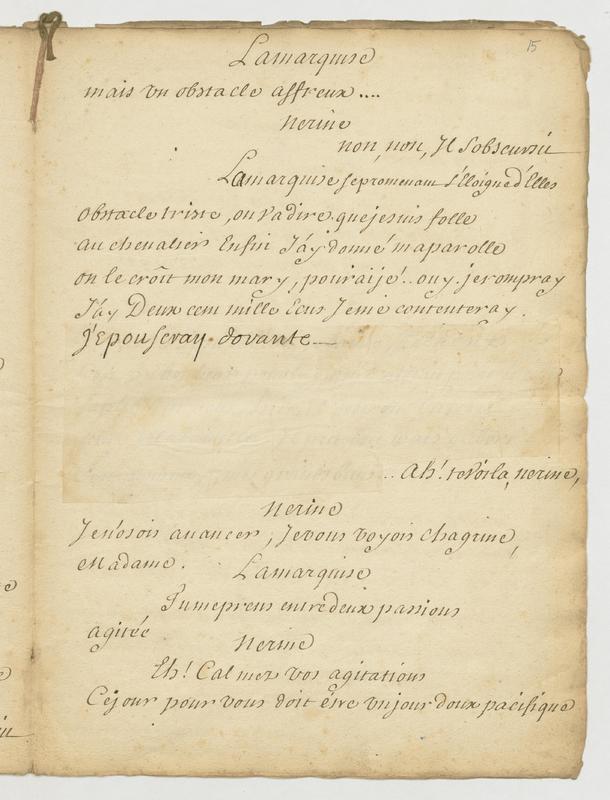 15
Lamarquise
mais vn obstacle affreux....
nerine
non, non, Il s'obscurcit
Lamarquise sepromenant s'Eloigned'Elles
obstacle triste, ou va dire que je suis folle
au chevalier Enfin J'áy donné maparolle
on le croit mon mary, pouraije!.. ouy. jerompray
J'áy Deux cent mille Ecus Jeme contenteray.
J'Epouseray dorante
.. ah! te voila, nerine,
nerine
Jen'osois auancer, Jevous voyois chagrine,
Madame.
Lamarquise
Tumeprens entre deux passions
agitée
nerine
Eh! Calmez vos agitations
Cejour pour vous doit être vnjour doux pacifique